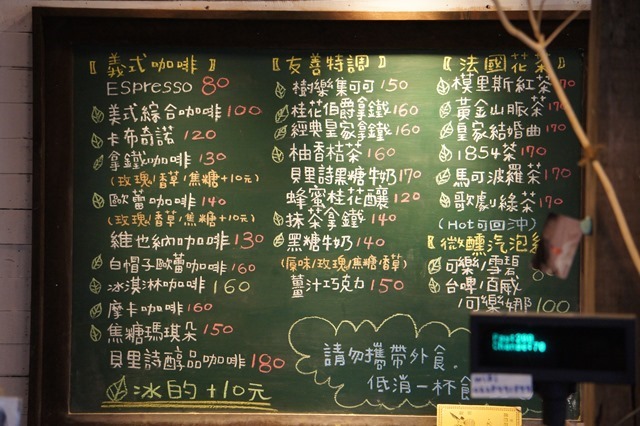 〖義式咖啡〗
Espresso 80
美式綜合咖啡 100
卡布奇諾 120
拿鐵咖啡 130
(玫瑰/香草/焦糖+10元)
歐蕾咖啡 140
(玫瑰/香草/焦糖+10元)
維也納咖啡 130
白帽子歐蕾咖啡 160
冰淇淋咖啡 160
摩卡咖啡 160
焦糖瑪琪朵 150
貝里詩醇品咖啡 180
冰的+10元
〖友善特調〗
樹樂集可可 150
桂花伯爵拿鐵 160
經典皇家拿鐵 160
柚香桔茶 160
貝里詩黑糖牛奶 170
蜂蜜桂花釀 120
抹茶拿鐵 140
黑糖牛奶 140
(原味/玫瑰/焦糖/香草)
薑汁巧克力 150
請勿攜帶外食。
低消一杯
〖法國花茶
模里斯紅茶 170
黃金山脈茶 170
皇家結婚曲 170
1854茶 170
馬可波羅茶 170
歌劇綠茶 170
(Hot可回沖)
〖微醺汽泡
可樂/雪碧
台啤/百威
/可樂娜 100